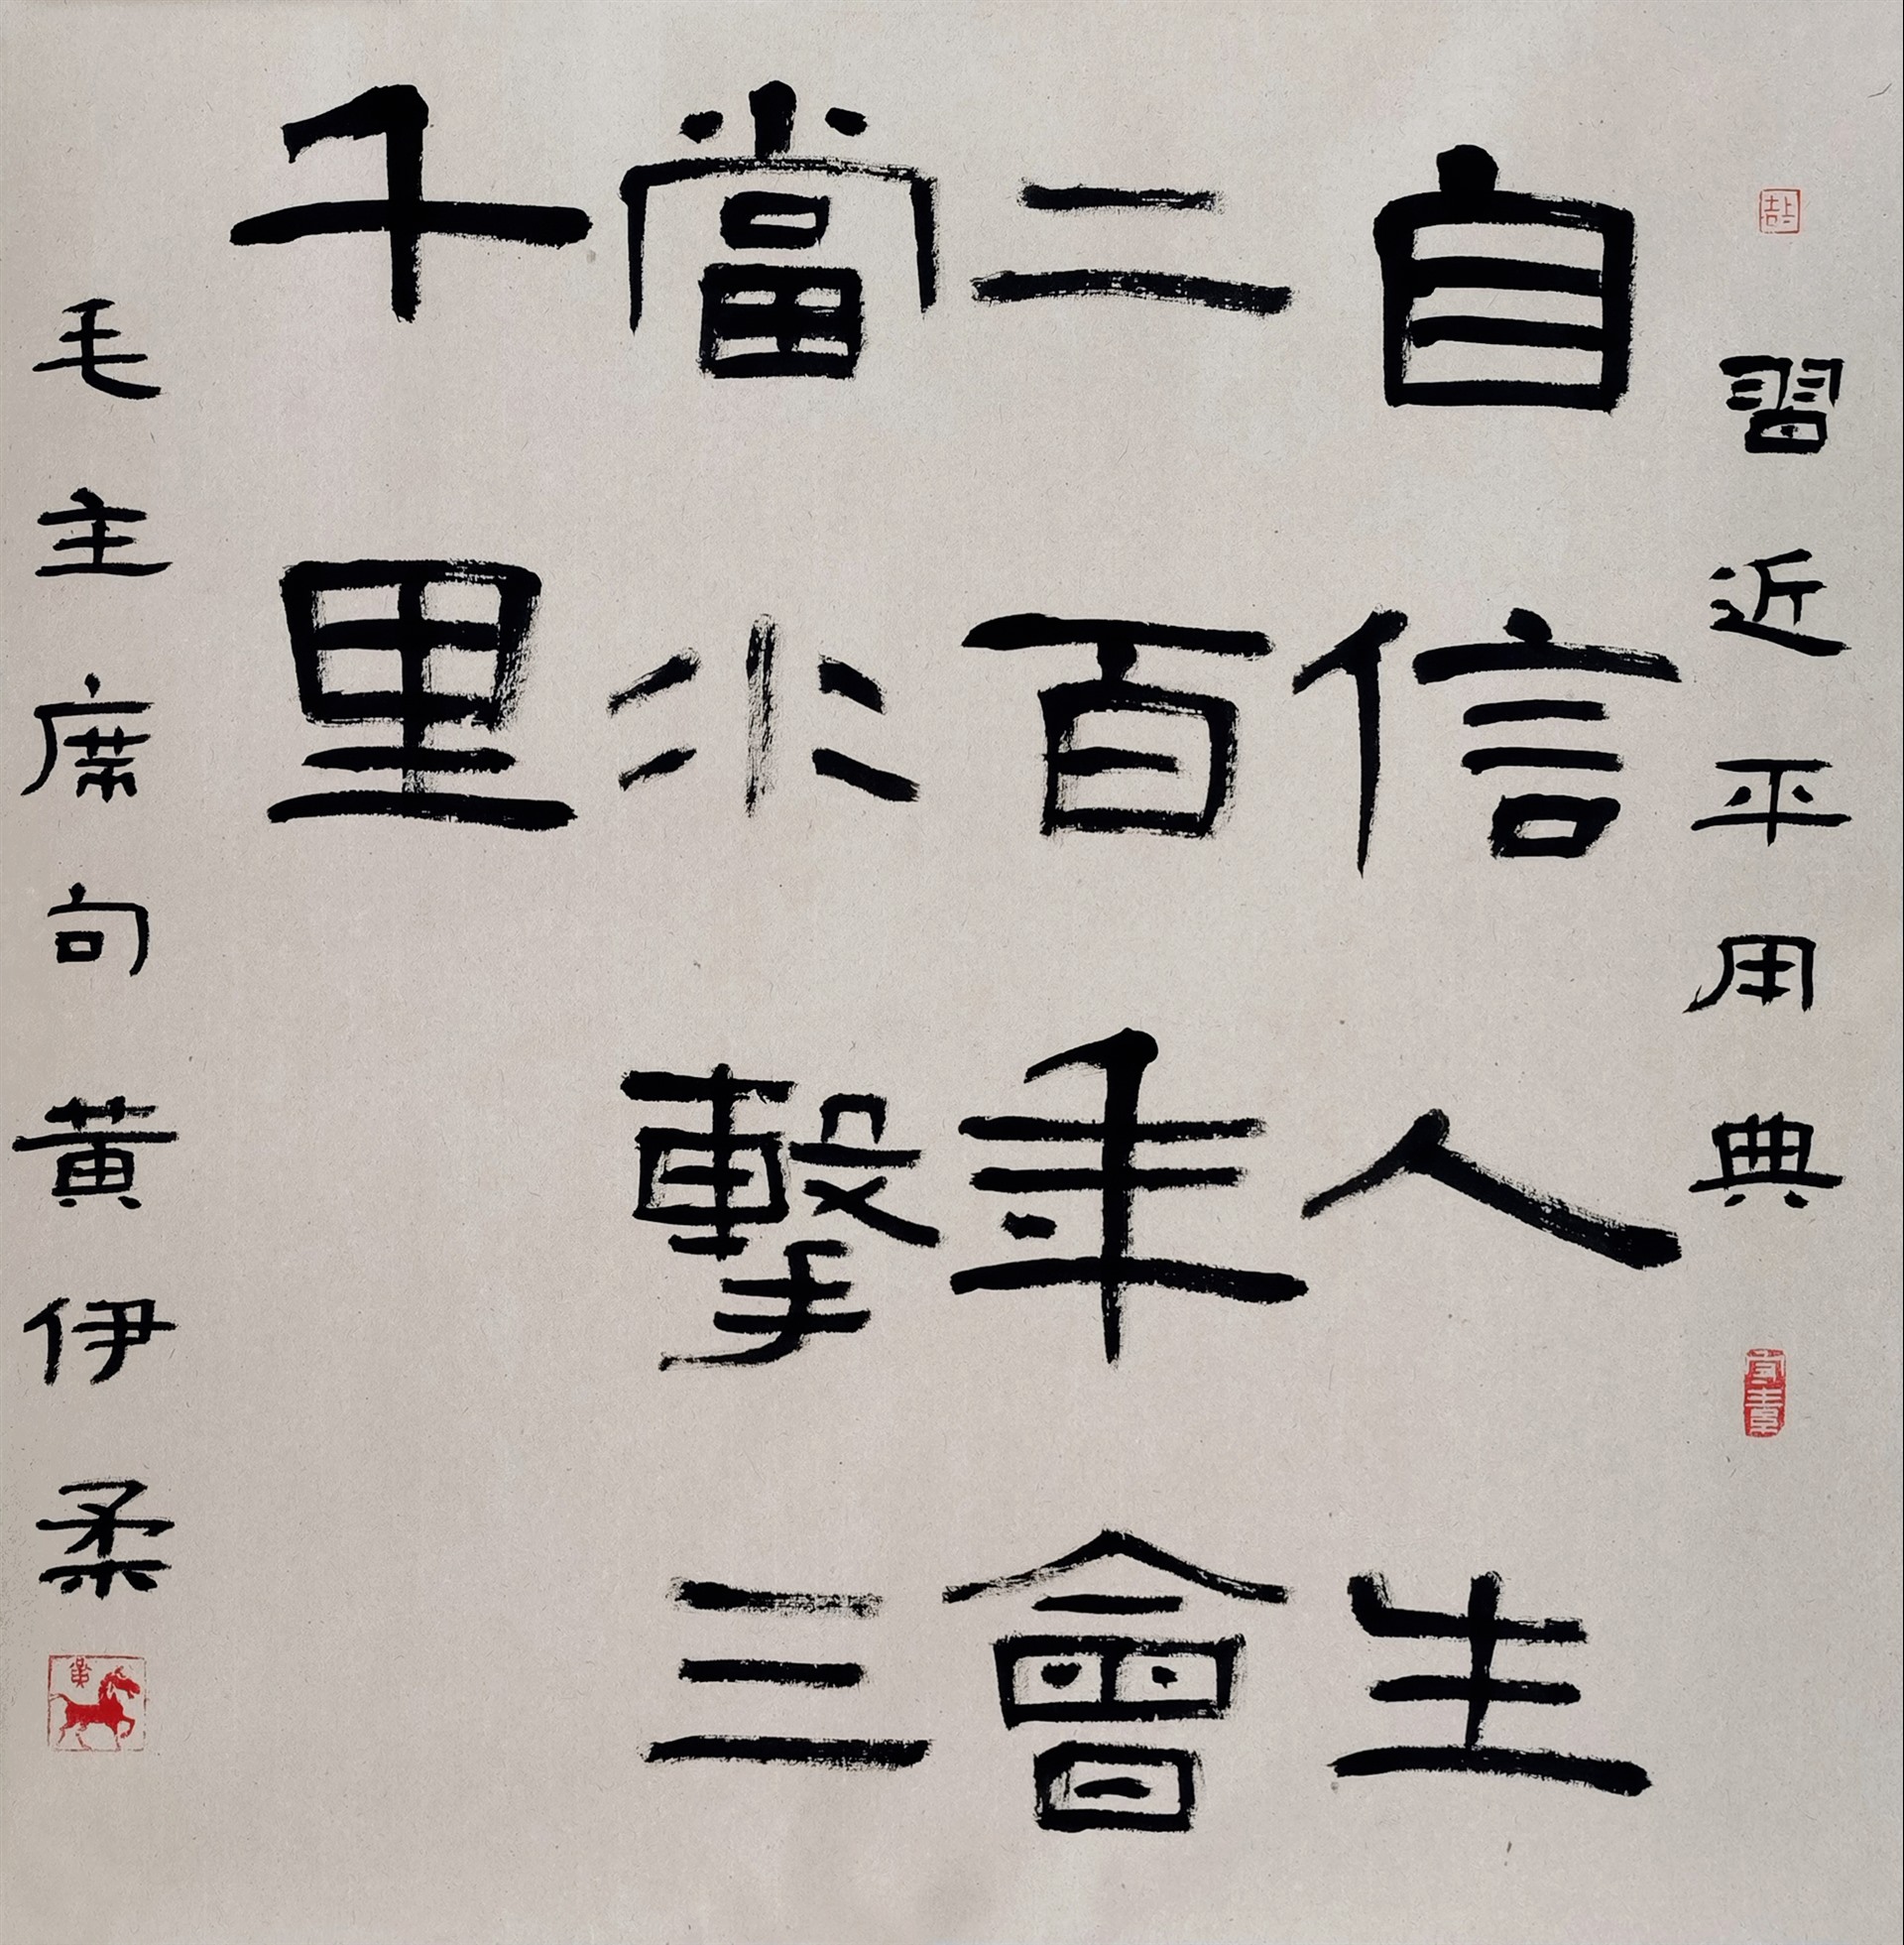 習近平用典
自信人生
二百年會
當水擊三
千里
毛主席句黃伊柔
黃